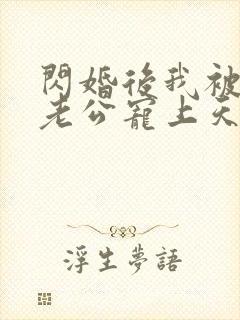 閃婚後我被
老公寵上天
浮生夢語